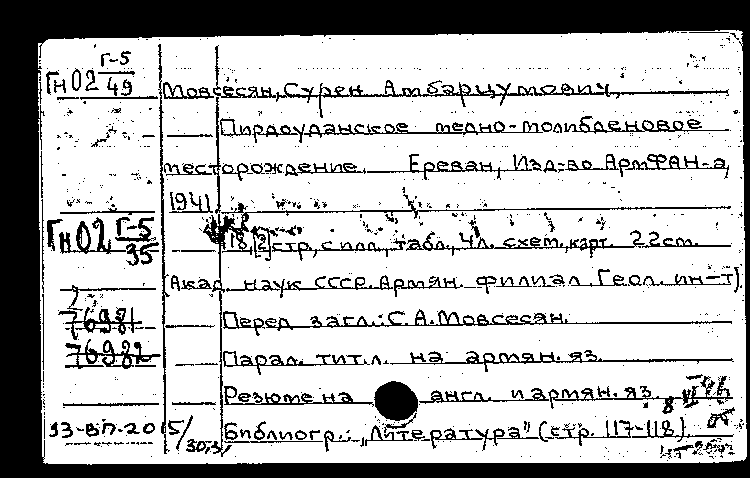 Гн02 Г-5/49
Мовсесян, Сурен Амбарцумович,
Пирдоуданское медно-молибденовое
месторождение. Ереван, Изд-во АрмФАН-а,
1941.
Гн02 Г-5/35
118, [2] стр, с илл., табл., 4 л. схем., карт. 22 см.
(Акад. наук СССР. Армян. филиал. Геол. ин-т)
76981
Перед загл.: С. А. Мовсесян.
76982
Парал. тит. л. на армян. яз.
Резюме на англ. и армян. яз.
8 VI 46
13-ВП-2015/30,3,
Библиогр.: „Литература" (стр. 117-118)